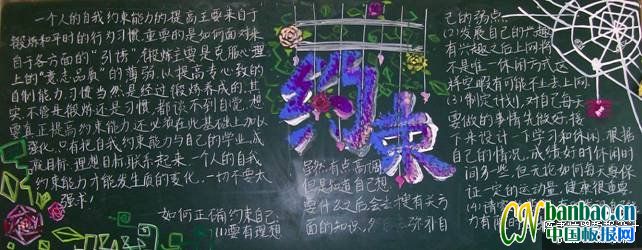 一个人的自我约束能力的提高主要来自于
锻炼和平时的行为习惯,重要的是如何面对来
自于各方面的“引诱”,锻炼主要是克服心理
上的“意志品质”的薄弱,以提高专心致的
自制能力,习惯当然是经过锻炼养成的,其
实不管是锻炼还是习惯,都谈不到自觉,想
要真正提高约束能力,还必须在此基础上加以
强化,只有把自我约束能力与自己的学业,成
就目标,理想目标联系起来,一个人的自我
约束能力才能发生质的变化,一切不要太
强求!
如何正确约束自己:
(1)要有理想
约束
虽然有点高调,
但是知道自己想
要什么之后会主
面的知识,
己的弱点。
(2)发展自己的兴趣,
有兴趣之后上网将
不是唯一休闲方式,这
样空暇有可能不去上网
(3)制定计划,对自己每天
要做的事情先做好,接
下来设计一下学习和休闲,根据
自己的情况,成绩好的休闲时
间多一些,但无论如何每天要保
证一定的运动量,健康很重要
(4)请
力有
CNbanbao.cn
中国板报网